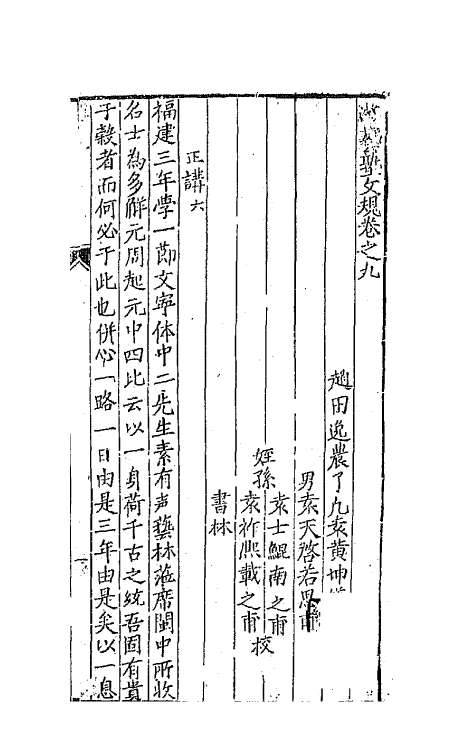 游藝塾文規卷之九
趙田逸農了凡袁黃坤儀
男袁天啓若思甫
姪孫
袁士鯤南之甫
袁祚熙載之甫
挍
書林
正講六
福建三年學一節文字体中二先生素有声藝林蒞席閩中所收
名士為多解元周起元中四比云以一身荷千古之統吾固有貴
于穀者而何必于此也併心一路一日由是三年由是矣以一息